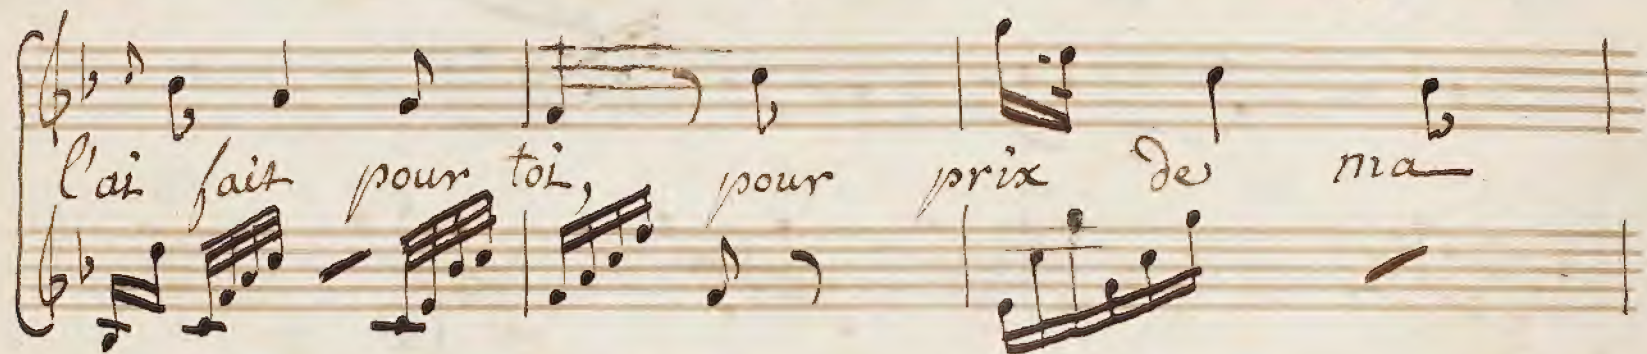 l'ai fait pour toi, pour prix de ma